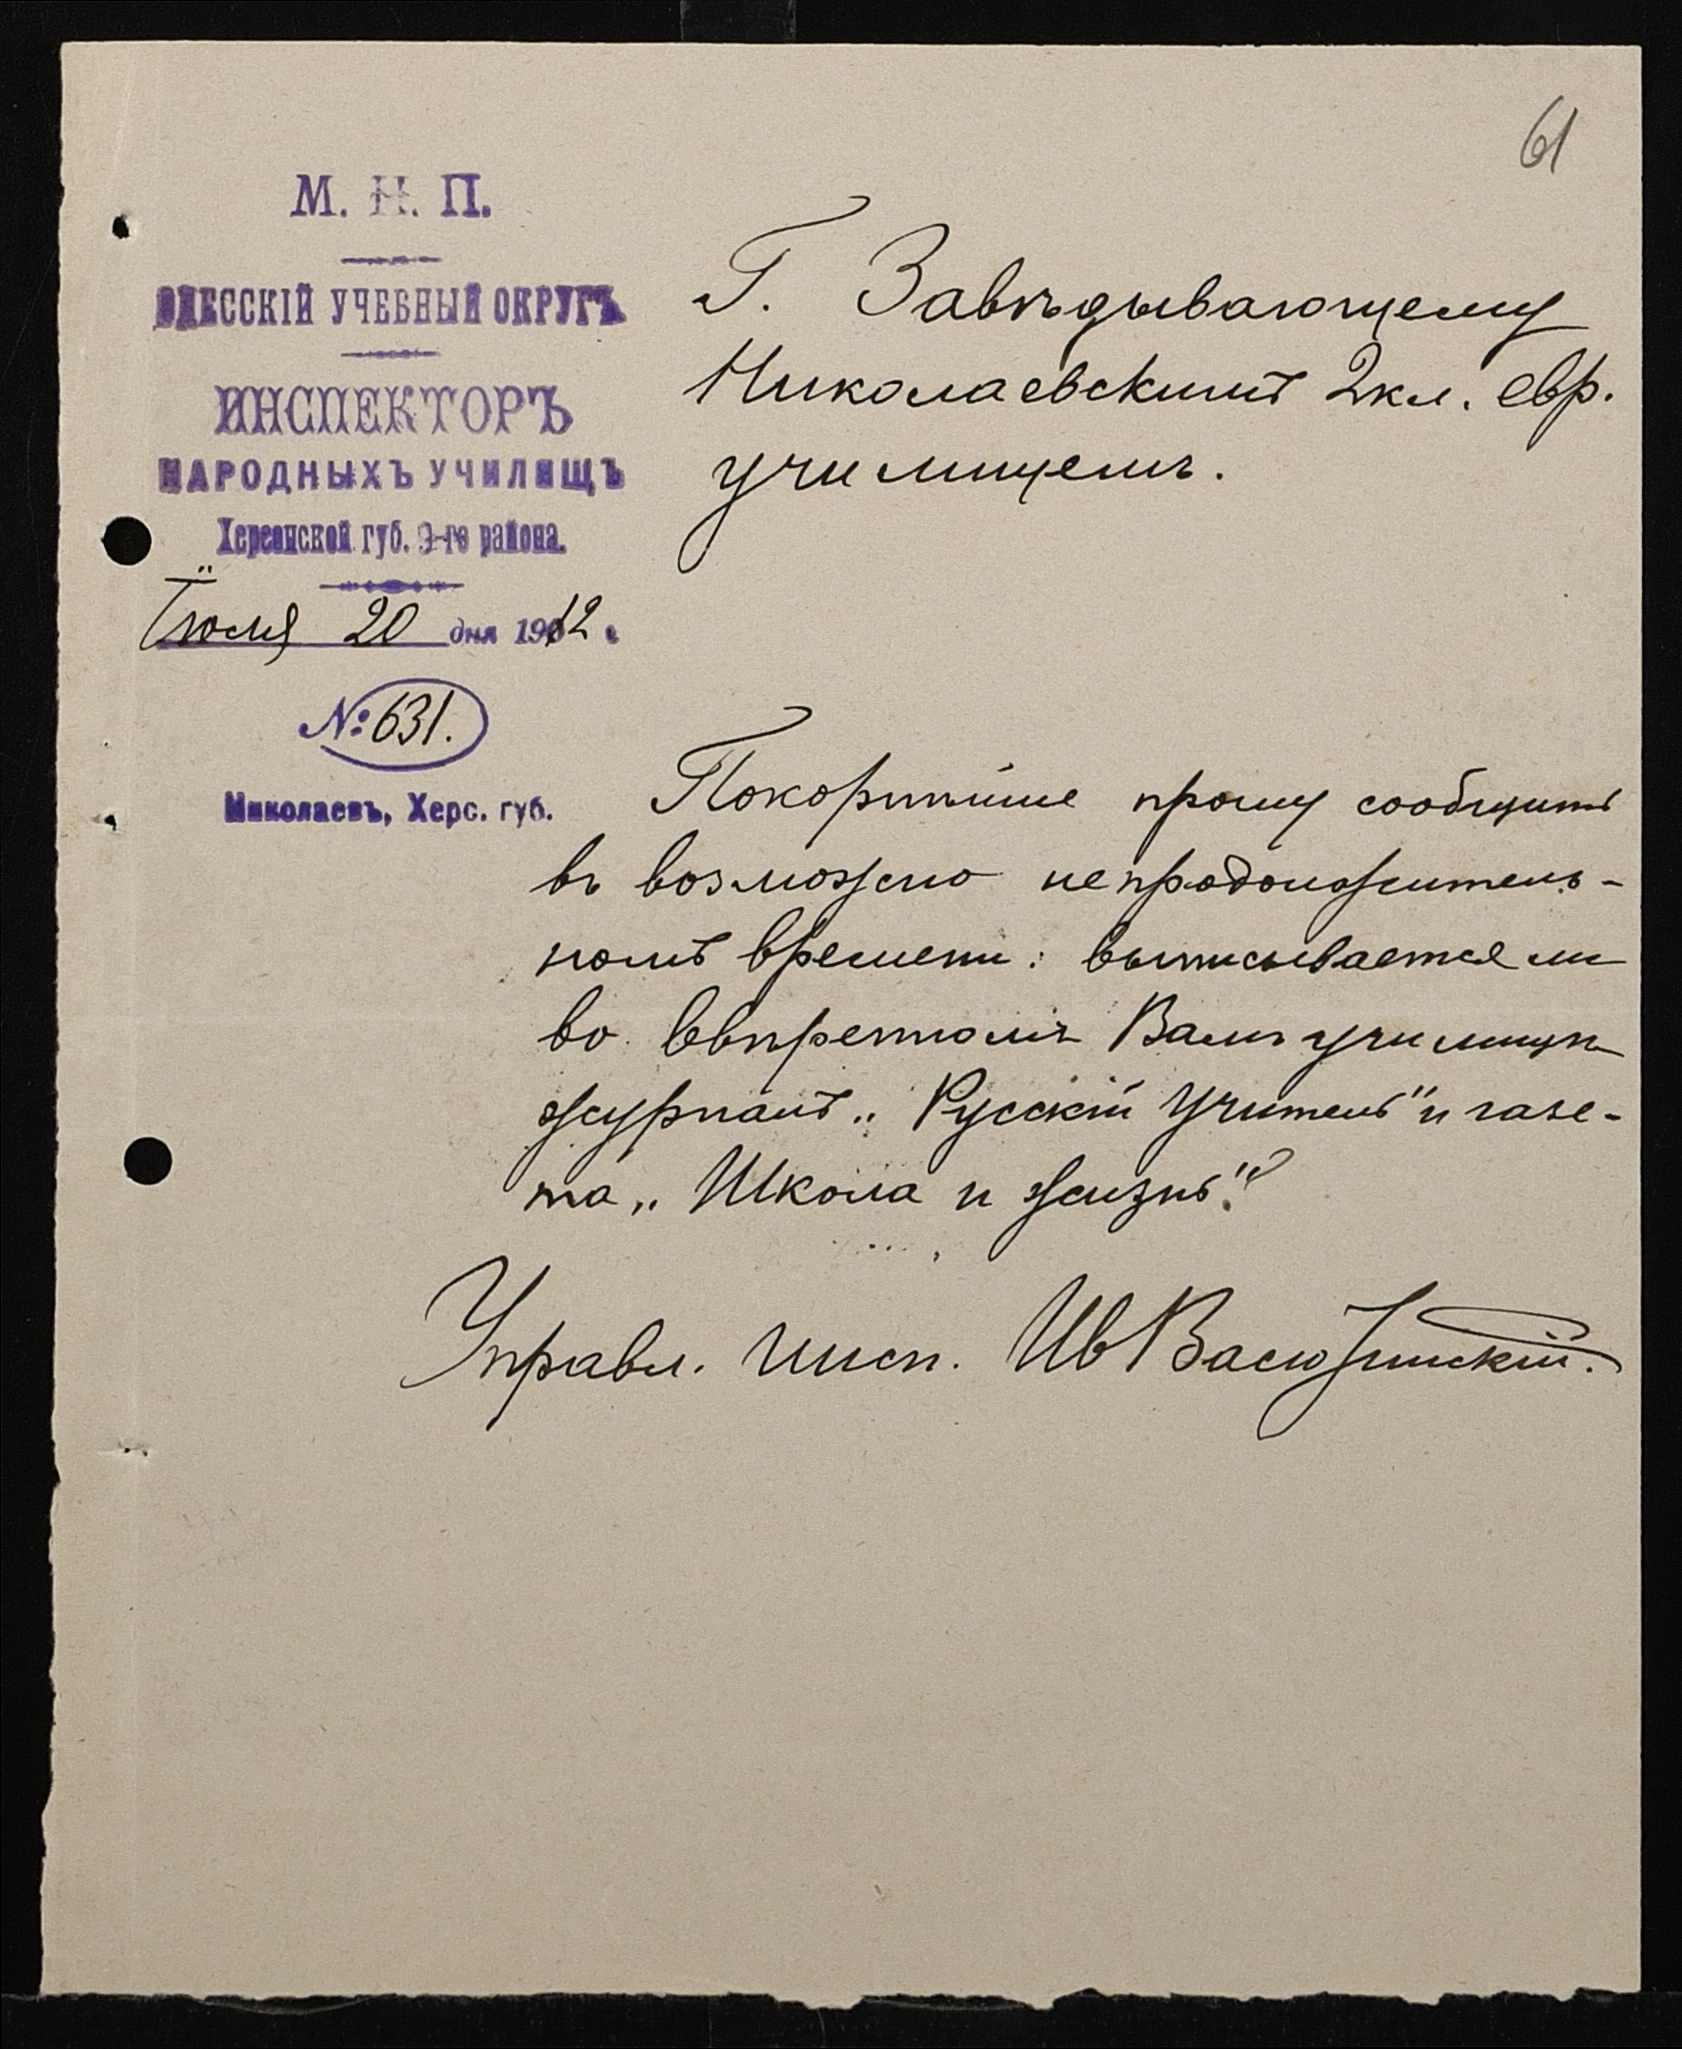 61
М. Н. П.
ОДЕССКІЙ УЧЕБНЫЙ ОКРУГЪ
ИНСПЕКТОРЪ
НАРОДНЫХЪ УЧИЛИЩЪ
Херсонской губ. 9-го района.
Іюля 20 дня 1912 г.
№ 631.
Николаевъ, Херс. губ.
Г. Завѣдывающему
Николаевскимъ 2кл. евр.
училищемъ.
Покорнѣйше прошу сообщить
въ возможно непродолжитель-
номъ времени: выписывается ли
во ввѣренномъ Вамъ училищѣ
журналъ „Русскій Учитель" и газе-
та „Школа и жизнь"?
Управл. Инсп. Ив Васютинскій.